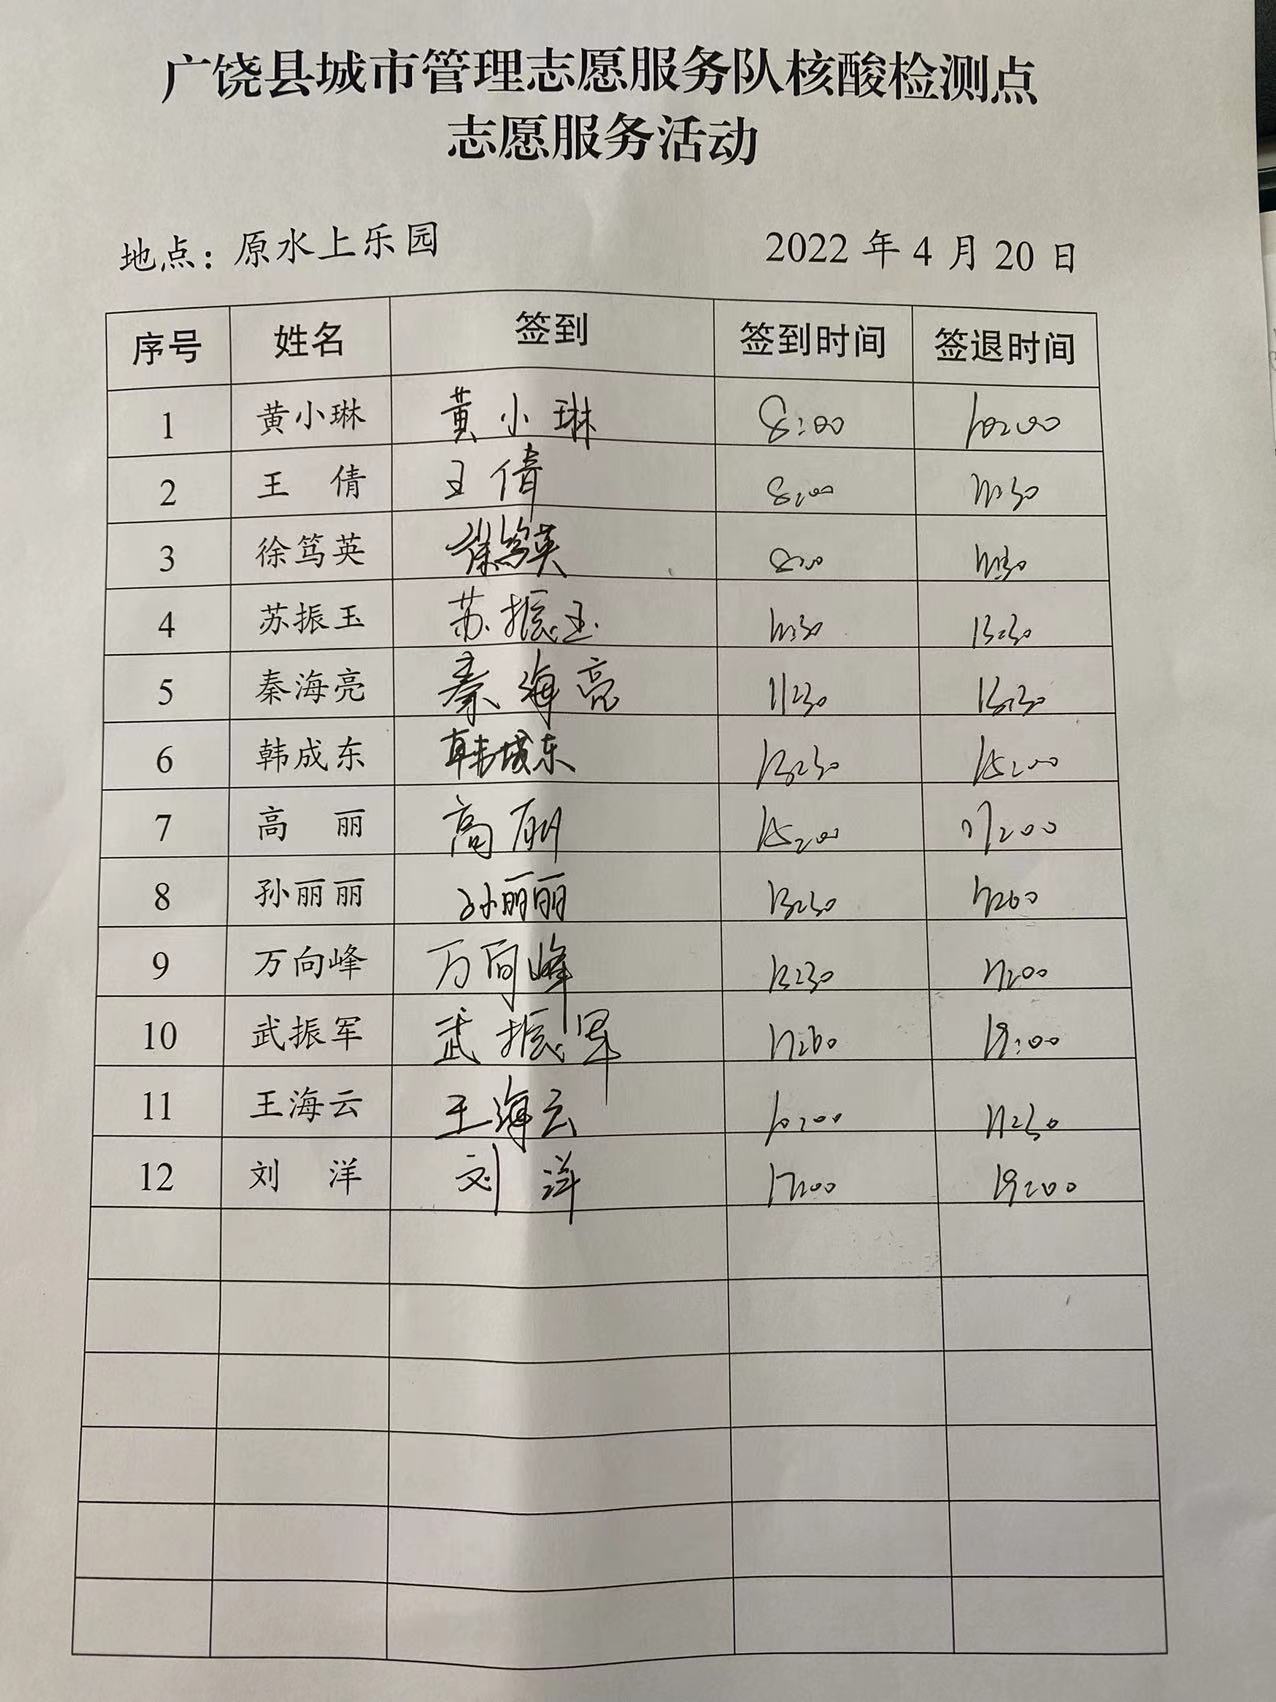 广饶县城市管理志愿服务队核酸检测点
志愿服务活动
地点：原水上乐园 2022 年 4 月 20 日
序号 姓名 签到 签到时间 签退时间
1 黄小琳 黄小琳 8:00 10:00
2 王 倩 王倩 8:00 11:30
3 徐笃英 徐笃英 8:00 11:30
4 苏振玉 苏振玉 11:30 13:30
5 秦海亮 秦海亮 11:30 13:30
6 韩成东 韩成东 13:30 15:00
7 高 丽 高丽 15:00 17:00
8 孙丽丽 孙丽丽 13:30 17:00
9 万向峰 万向峰 13:30 17:00
10 武振军 武振军 17:00 19:00
11 王海云 王海云 10:00 11:30
12 刘 洋 刘洋 17:00 19:00